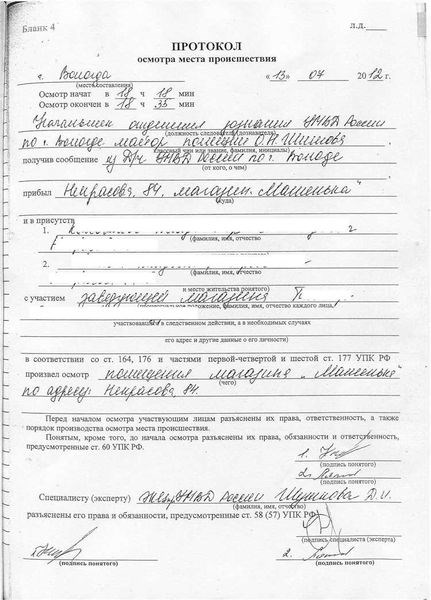 Бланк 4
Л.Д.
ПРОТОКОЛ
осмотра места происшествия
г. Вологда « 13 » 07 2012 г.
(место составления)
Осмотр начат в 18 ч 18 мин
Осмотр окончен в 18 ч 35 мин
Начальник отделения дознания УМВД России
(должность следователя (дознавателя),
по г. Вологде майор полиции О.Н.
классный чин или звание, фамилия, инициалы)
получив сообщение из Д/ч УМВД России по г. Вологде
(от кого, о чем)
прибыл Некрасова, 84, магазин „Машенька"
(куда)
и в присутствии
1.
(фамилия, имя, отчество
2.
(фамилия, имя, отчество
и место жительства понятого)
с участием заведующей магазина П.
(процессуальное положение, фамилия, имя, отчество каждого лица,
участвовавшего в следственном действии, а в необходимых случаях
его адрес и другие данные о его личности)
в соответствии со ст. 164, 176 и частями первой-четвертой и шестой ст. 177 УПК РФ
произвел осмотр помещения магазина „Машенька"
(чего)
по адресу: Некрасова, 84.
Перед началом осмотра участвующим лицам разъяснены их права, ответственность, а также
порядок производства осмотра места происшествия.
Понятым, кроме того, до начала осмотра разъяснены их права, обязанности и ответственность,
предусмотренные ст. 60 УПК РФ.
1.
(подпись понятого)
2.
(подпись понятого)
Специалисту (эксперту) УМВД России Д.И.
(фамилия, имя, отчество)
разъяснены его права и обязанности, предусмотренные ст. 58 (57) УПК РФ
(подпись специалиста (эксперта)
(подпись понятого)
2.
(подпись понятого)